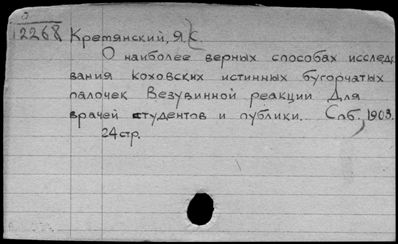 12268 Кретянский, Я. С.
О наиболее верных способах исследо
вания коховских истинных бугорчатых
палочек Везувинной реакции Для
врачей студентов и публики.. Спб., 1903.
24стр.